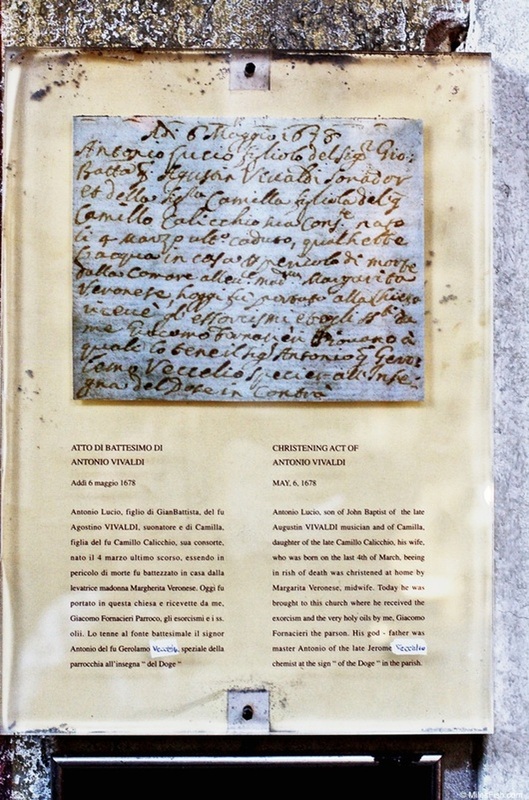 Adi 6 Maggio 1678
Antonio Lucio figliolo del sigr Gio:
Batta q Agustin Vivaldi sonador
et della Camilla figliola del q
Camillo Calicchio sua nato
li 4 Marzo caduto,
l'acqua in casa pericolo di morte
dalla Comare Margarita
Veronese, hoggi fu portato alla chiesa
me Giacomo
quali lo tene il sig Antonio q Gero:
lamo Veccelio all' Inse-
gna del Dose in Contrà
ATTO DI BATTESIMO DI
ANTONIO VIVALDI
Addì 6 maggio 1678
Antonio Lucio, figlio di GianBattista, del fu
Agostino VIVALDI, suonatore e di Camilla,
figlia del fu Camillo Calicchio, sua consorte,
nato il 4 marzo ultimo scorso, essendo in
pericolo di morte fu battezzato in casa dalla
levatrice madonna Margherita Veronese. Oggi fu
portato in questa chiesa e ricevette da me,
Giacomo Fornacieri Parroco, gli esorcismi e i ss.
olii. Lo tenne al fonte battesimale il signor
Antonio del fu Gerolamo Veccelio, speziale della
parrocchia all'insegna " del Doge "
CHRISTENING ACT OF
ANTONIO VIVALDI
MAY, 6, 1678
Antonio Lucio, son of John Baptist of the late
Augustin VIVALDI musician and of Camilla,
daughter of the late Camillo Calicchio, his wife,
who was born on the last 4th of March, beeing
in rish of death was christened at home by
Margarita Veronese, midwife. Today he was
brought to this church where he received the
exorcism and the very holy oils by me, Giacomo
Fornacieri the parson. His god - father was
master Antonio of the late Jerome Veccelio
chemist at the sign " of the Doge " in the parish.